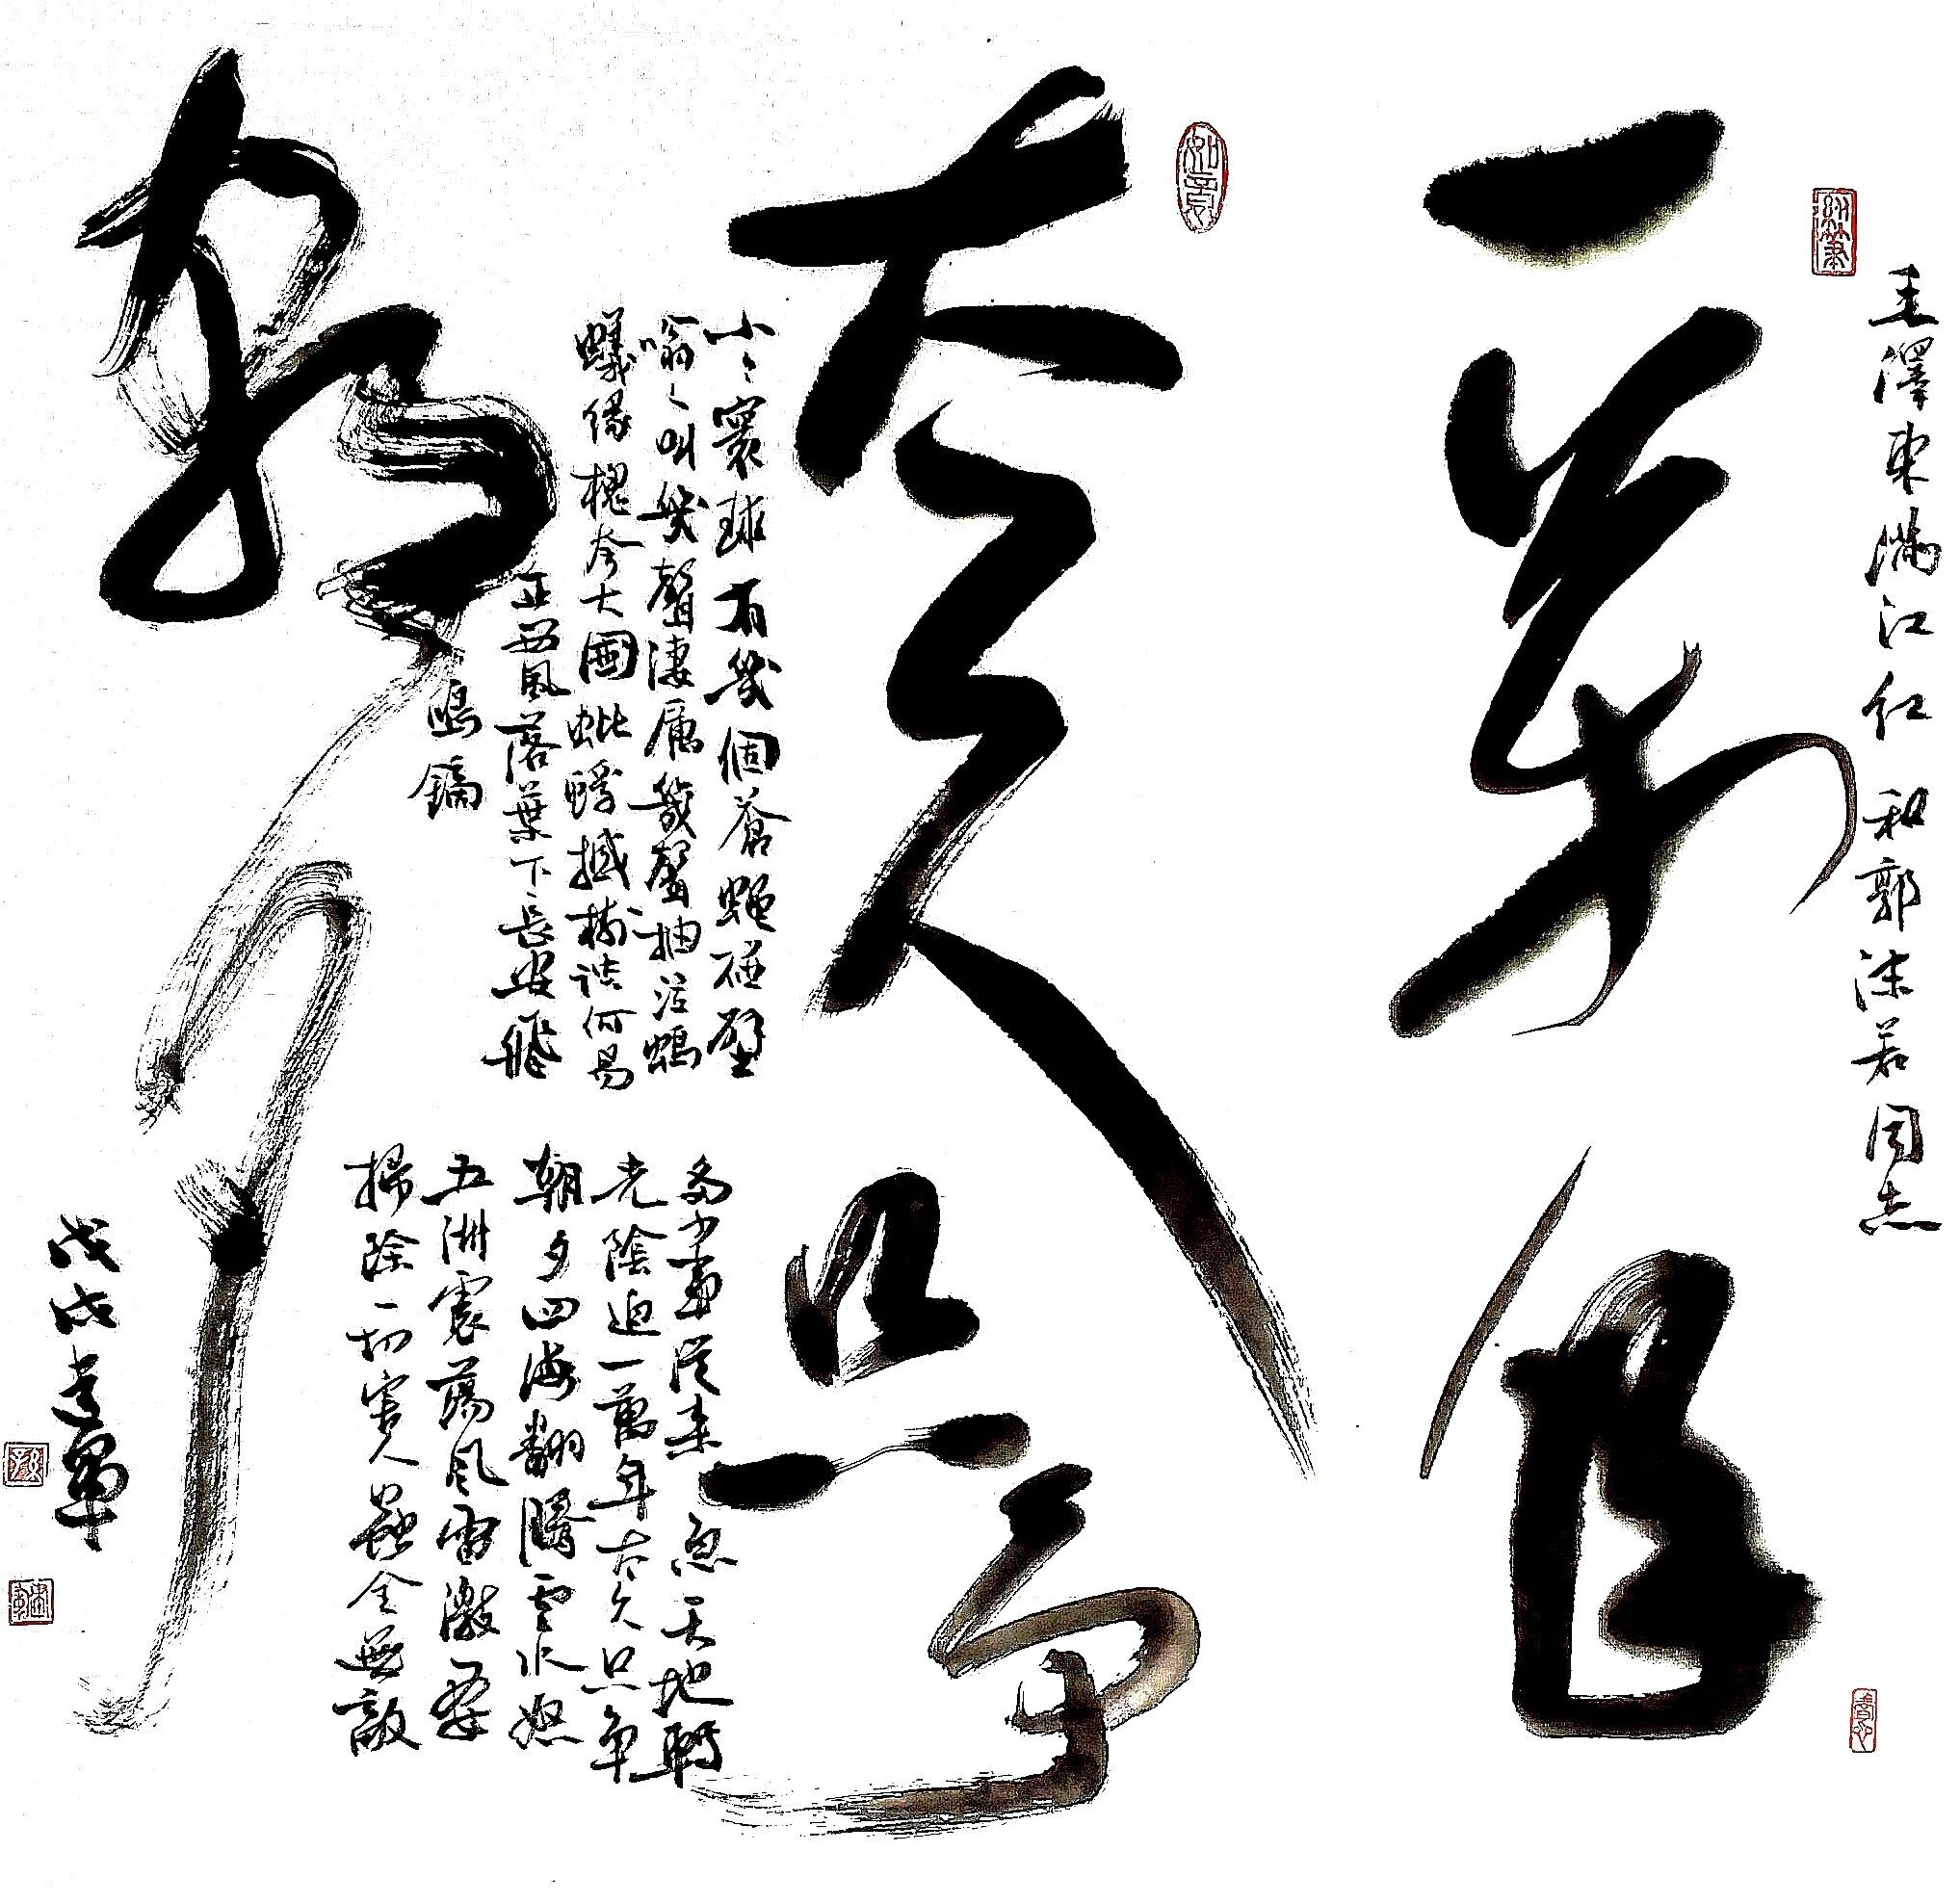 毛澤東滿江紅和郭沫若同志
一萬年
太久只争
朝夕
小〻寰球有幾個蒼蠅碰壁
嗡〻叫幾聲淒厲幾聲抽泣螞
蟻緣槐夸大國蚍蜉撼樹談何易
正西風落葉下長安飛
鳴鏑
多少事從來急天地轉
光陰迫一萬年太久只争
朝夕四海翻騰雲水怒
五洲震蕩風雷激要
掃除一切害人蟲全無敵
戊戌
如意